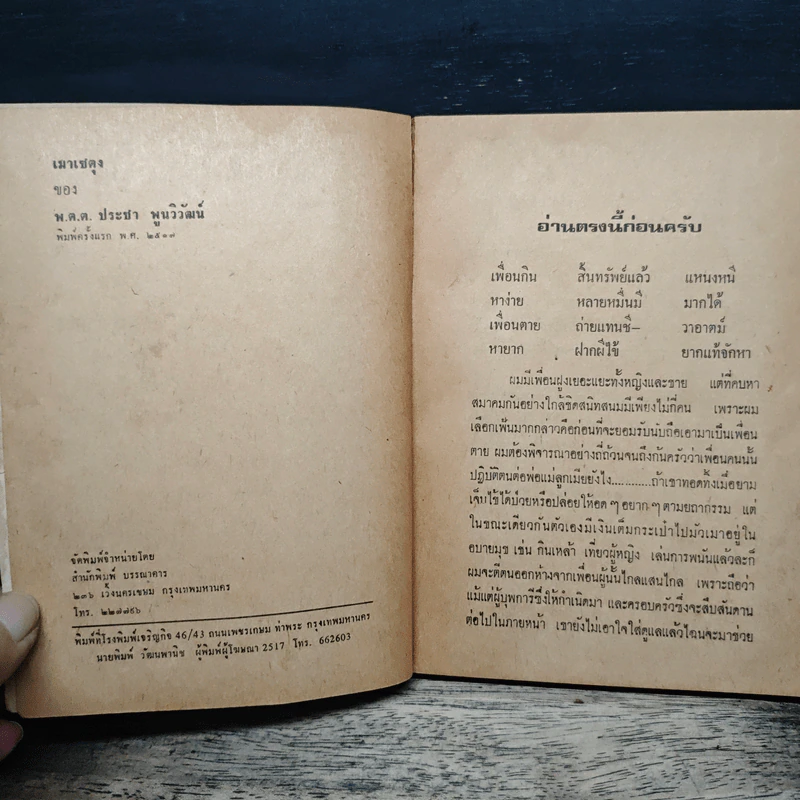 เมาเซตุง
ของ
พ.ต.ต. ประชา พูนวิวัฒน์
พิมพ์ครั้งแรก พ.ศ. ๒๕๑๗
จัดพิมพ์จำหน่ายโดย
สำนักพิมพ์ บรรณาคาร
๒๓๖ เวิ้งนครเขษม กรุงเทพมหานคร
โทร. ๒๒๗๗๙๖
พิมพ์ที่โรงพิมพ์เจริญกิจ 46/43 ถนนเพชรเกษม ท่าพระ กรุงเทพมหานคร
นายพิมพ์ วัฒนพานิช ผู้พิมพ์ผู้โฆษณา 2517 โทร. 662603
อ่านตรงนี้ก่อนครับ
เพื่อนกิน สิ้นทรัพย์แล้ว แหนงหนี
หาง่าย หลายหมื่นมี มากได้
เพื่อนตาย ถ่ายแทนชี– วาอาตม์
หายาก ฝากผีไข้ ยากแท้จักหา
ผมมีเพื่อนฝูงเยอะแยะทั้งหญิงและชาย แต่ที่คบหา
สมาคมกันอย่างใกล้ชิดสนิทสนมมีเพียงไม่กี่คน เพราะผม
เลือกเฟ้นมากกล่าวคือก่อนที่จะยอมรับนับถือเอามาเป็นเพื่อน
ตาย ผมต้องพิจารณาอย่างถี่ถ้วนจนถึงก้นครัวว่าเพื่อนคนนั้น
ปฏิบัติตนต่อพ่อแม่ลูกเมียยังไง............ถ้าเขาทอดทิ้งเมื่อยาม
เจ็บไข้ได้ป่วยหรือปล่อยให้อด ๆ อยาก ๆ ตามยถากรรม แต่
ในขณะเดียวกันตัวเองมีเงินเต็มกระเป๋าไปมัวเมาอยู่ใน
อบายมุข เช่น กินเหล้า เที่ยวผู้หญิง เล่นการพนันแล้วละก็
ผมจะตีตนออกห้างจากเพื่อนผู้นั้นไกลแสนไกล เพราะถือว่า
แม้แต่ผู้บุพการีซึ่งให้กำเนิดมา และครอบครัวซึ่งจะสืบสันดาน
ต่อไปในภายหน้า เขายังไม่เอาใจใส่ดูแลแล้วไฉนจะมาช่วย